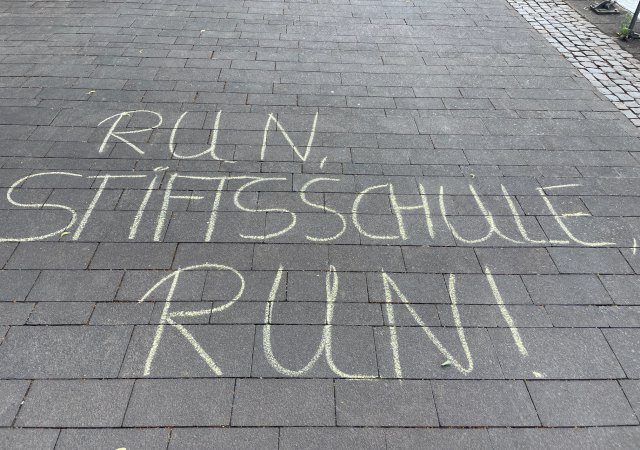 RUN,
STIFTSSCHULE,
RUN!